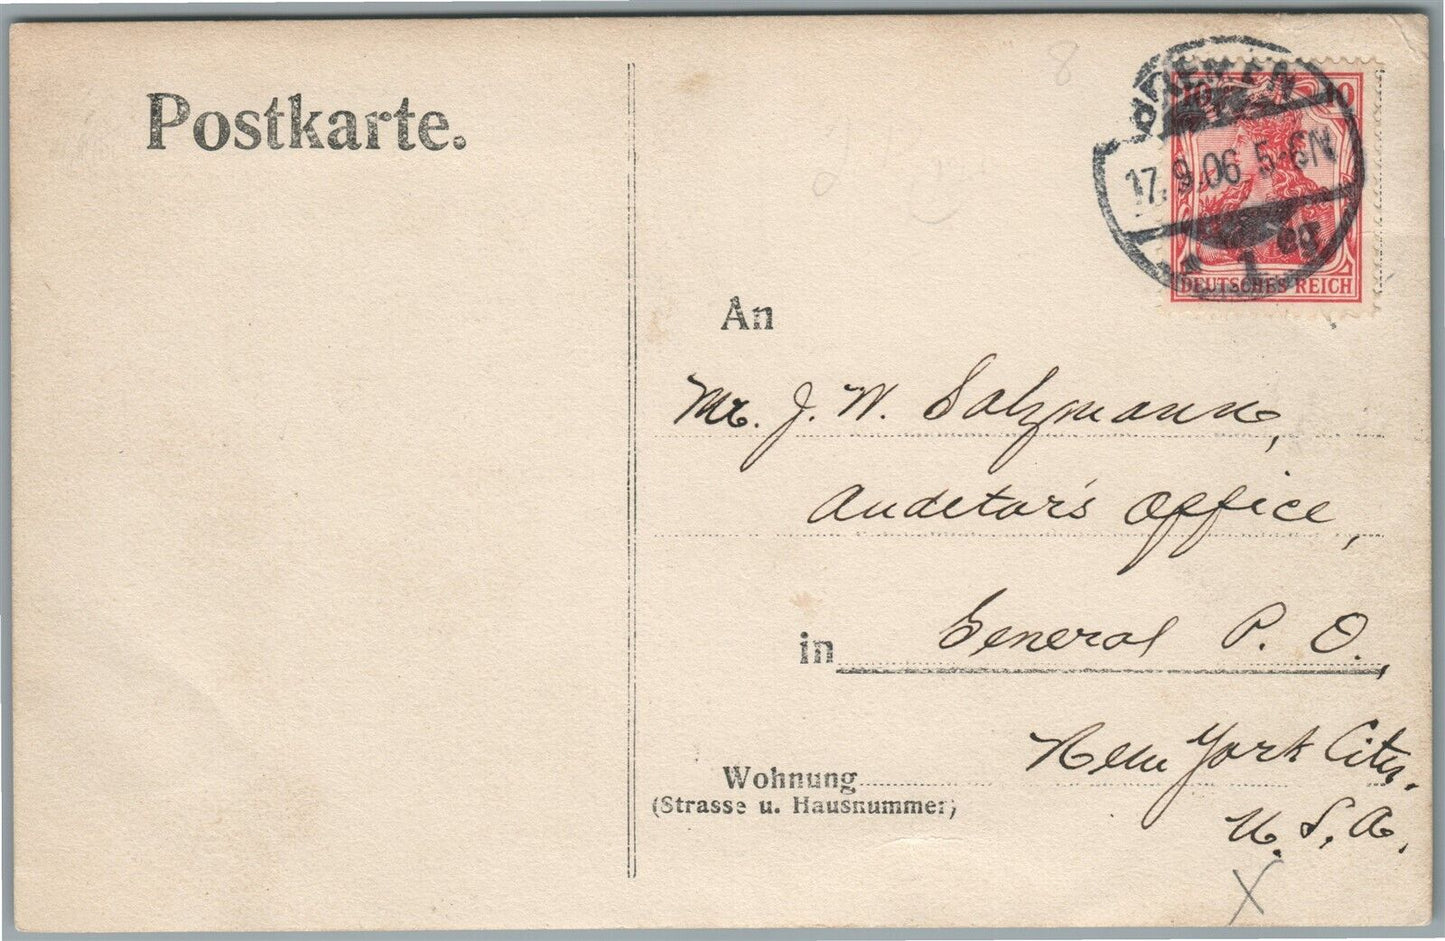 Postkarte.
BREMEN
17.9.06 5-6N
* 1 eg
10 10
DEUTSCHES REICH
8
An
Mr. J. W. Salzmann,
Auditor's Office,
in General P. O.,
New York City.
U. S. A.
Wohnung
(Strasse u. Hausnummer)
X